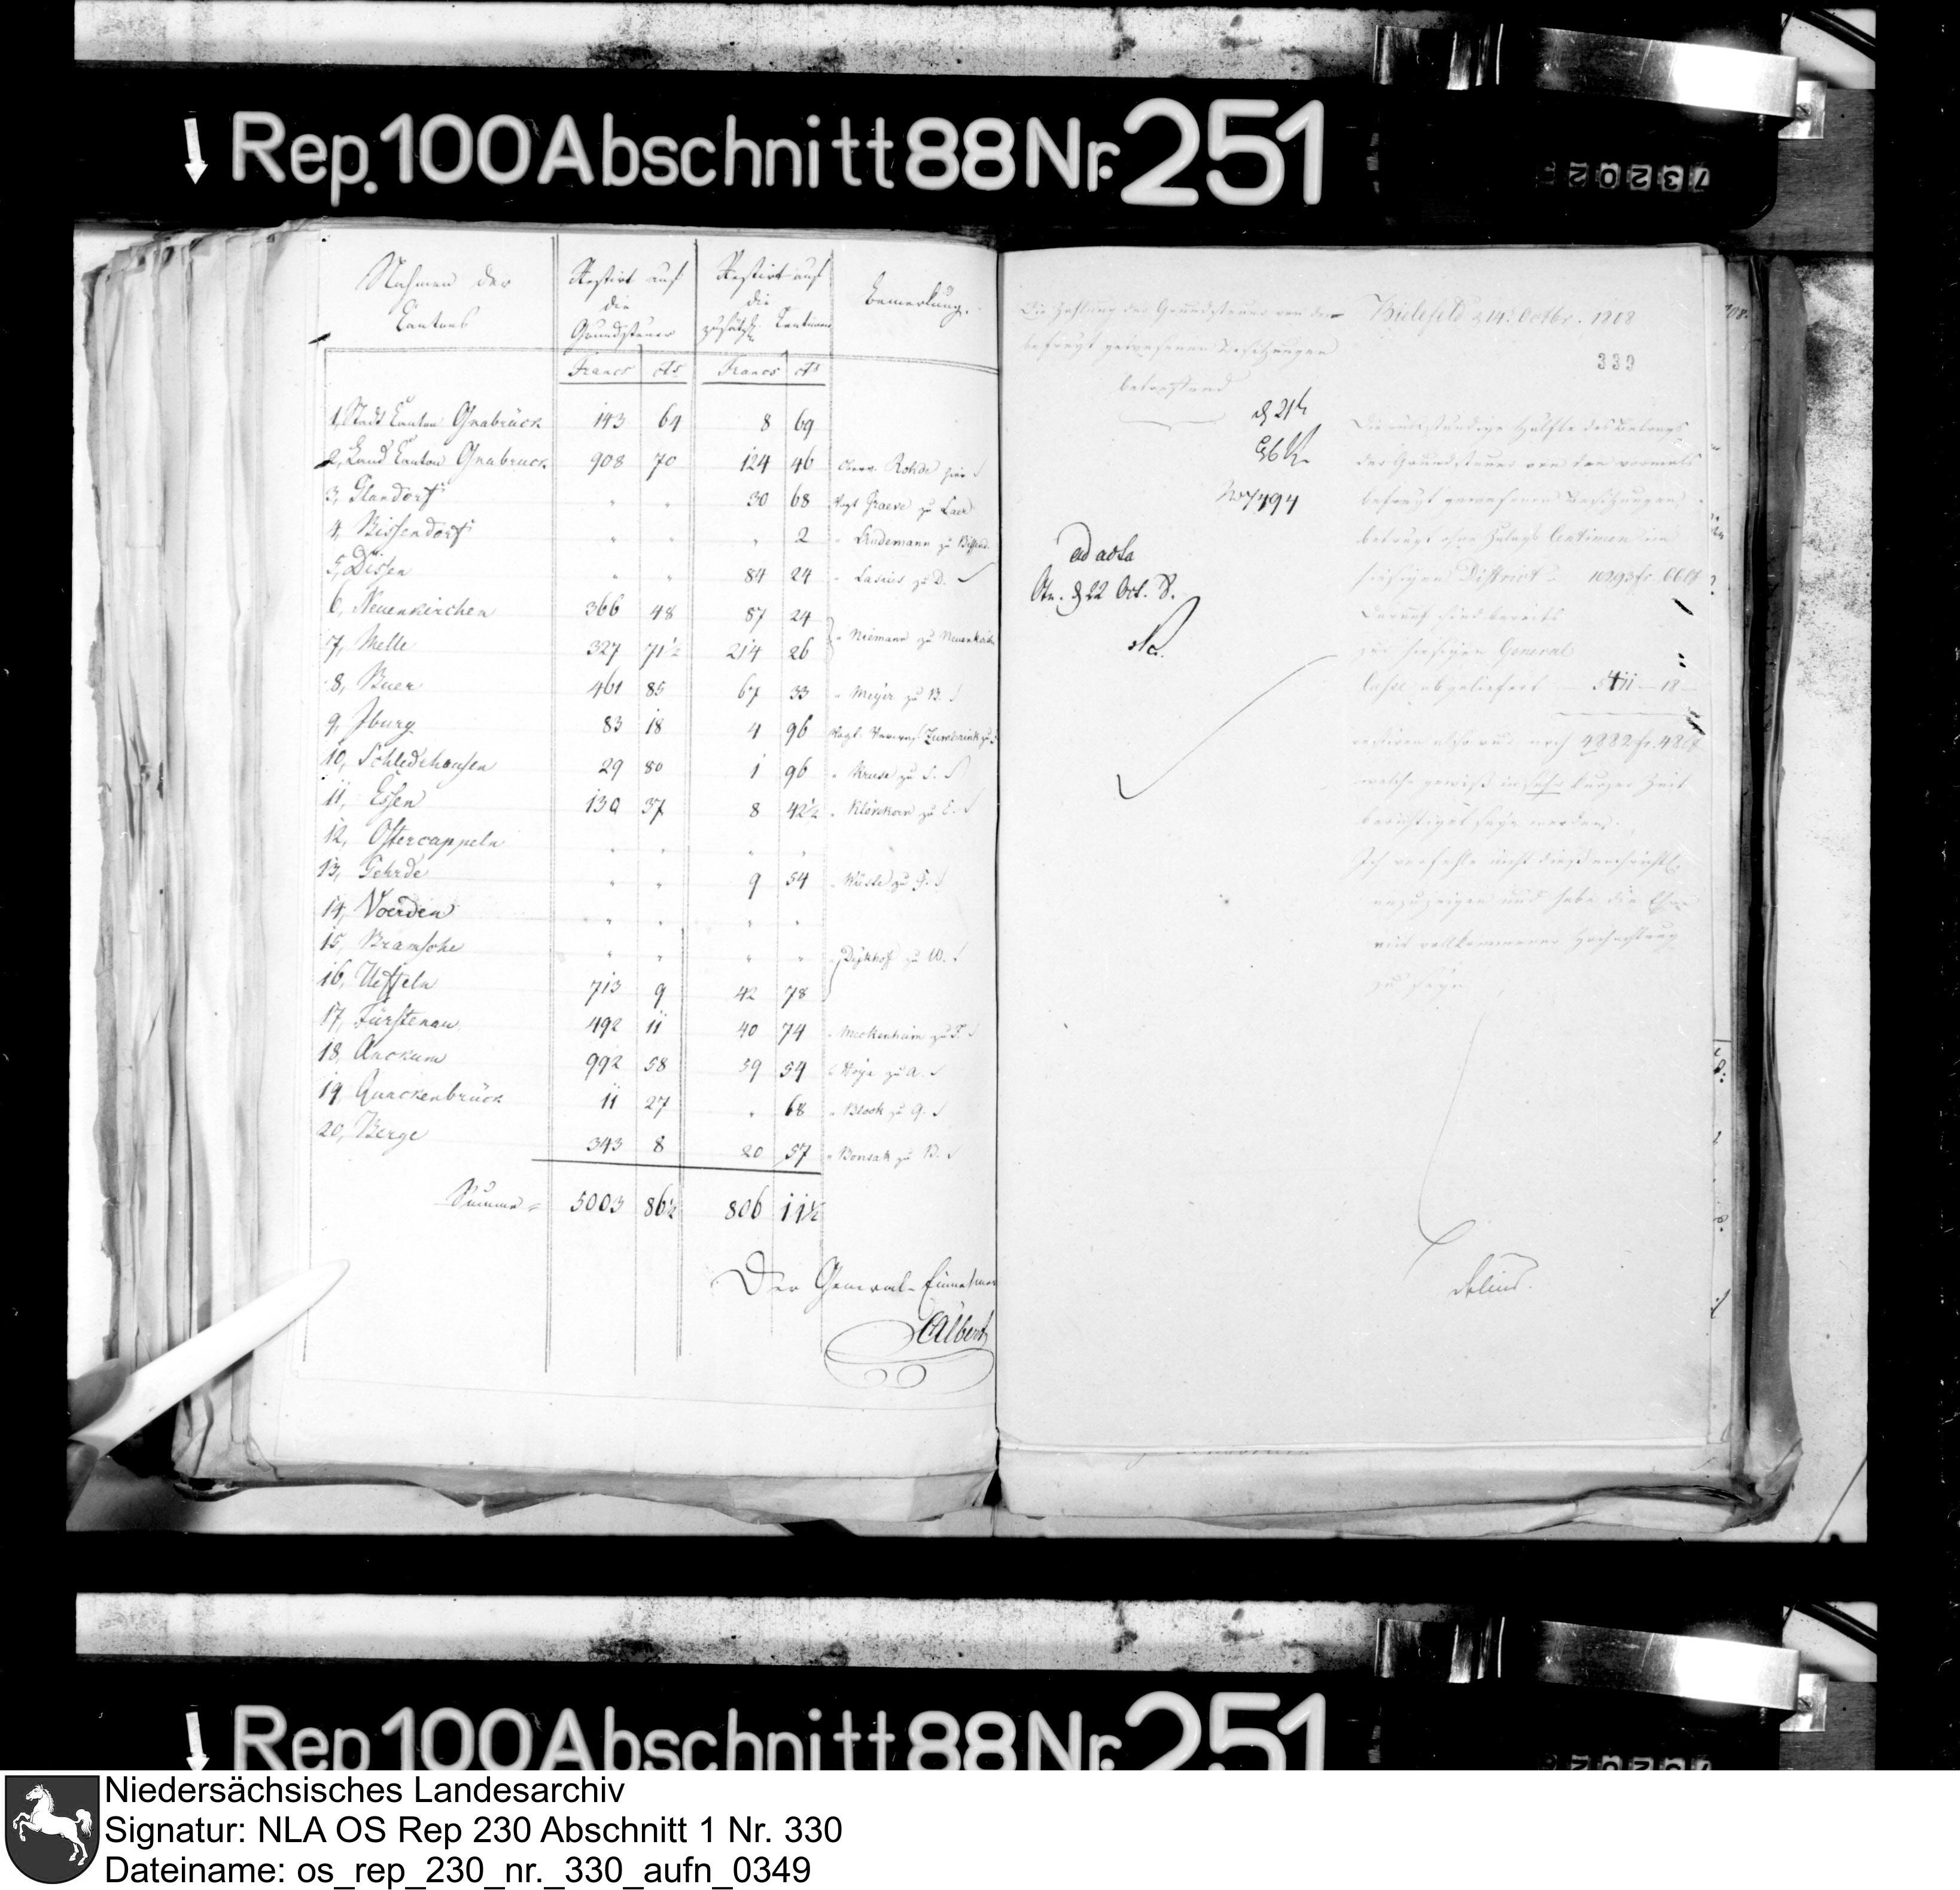 Rep. 100 Abschnitt 88 Nr. 251
73202
Nahmen der Cantons | Restirt auf die Grundsteuer | Restirt auf die zusätzl. Centimen | Bemerkung.
Francs | Cts | Francs | Cts
1, Stadt Canton Osnabrück 143 64 8 69
2, Land Canton Osnabrück 908 70 124 46 Rohde
3, Glandorf " " 30 68 Vogt Graeve zu Laer
4, Bissendorf " " " 2 " Lindemann zu Bissend.
5, Dissen " " 84 24 " Lasius zu D.
6, Neuenkirchen 366 48 87 24
7, Melle 327 71½ 214 26 " Niemann zu Neuenkirchen
8, Buer 461 85 67 33 " Meyer zu B.
9, Iburg 83 18 4 96 Vogt
10, Schledehausen 29 80 1 96 " Kruse zu S.
11, Essen 130 37 8 42½ zu E.
12, Ostercappeln " " " "
13, Gehrde " " 9 54 " Küste zu G.
14, Voerden " " " "
15, Bramsche " " " " zu U.
16, Ueffeln 713 9 42 78
17, Fürstenau 492 11 40 74 " Meckenheim zu F.
18, Anckum 992 58 59 54 zu A.
19, Quackenbrück 11 27 " 68 " Block zu Q.
20, Berge 343 8 20 57 " Bonsak zu B.
Summa = 5003 86½ 806 11½
Der General-Einnehmer
Albert
Die Zahlung der Grundsteuer von den
befreyt gewesenen Besitzungen
betreffend
d 21t
No 7494
ad acta
Osn. d 22 Oct. 8.
Bielefeld d 14. Octbr. 1808
339
Die rückständige Hälfte des Betrags
der Grundsteuer von den vormals
befreyt gewesenen Besitzungen
beträgt ohne Zulags Centimen im
hiesigen District 10293 fr. 66 ct
darauf sind bereits
zur hiesigen General
Casse abgeliefert 5411 – 18 –
restiren also nur noch 4882 fr. 48 ct
welche gewiß in sehr kurzer Zeit
berichtiget seyn werden.
Ich verfehle nicht dieß
anzuzeigen und habe die Ehre
mit vollkommener Hochachtung
zu seyn
Delius.
Rep. 100 Abschnitt 88 Nr. 251
Niedersächsisches Landesarchiv
Signatur: NLA OS Rep 230 Abschnitt 1 Nr. 330
Dateiname: os_rep_230_nr._330_aufn_0349